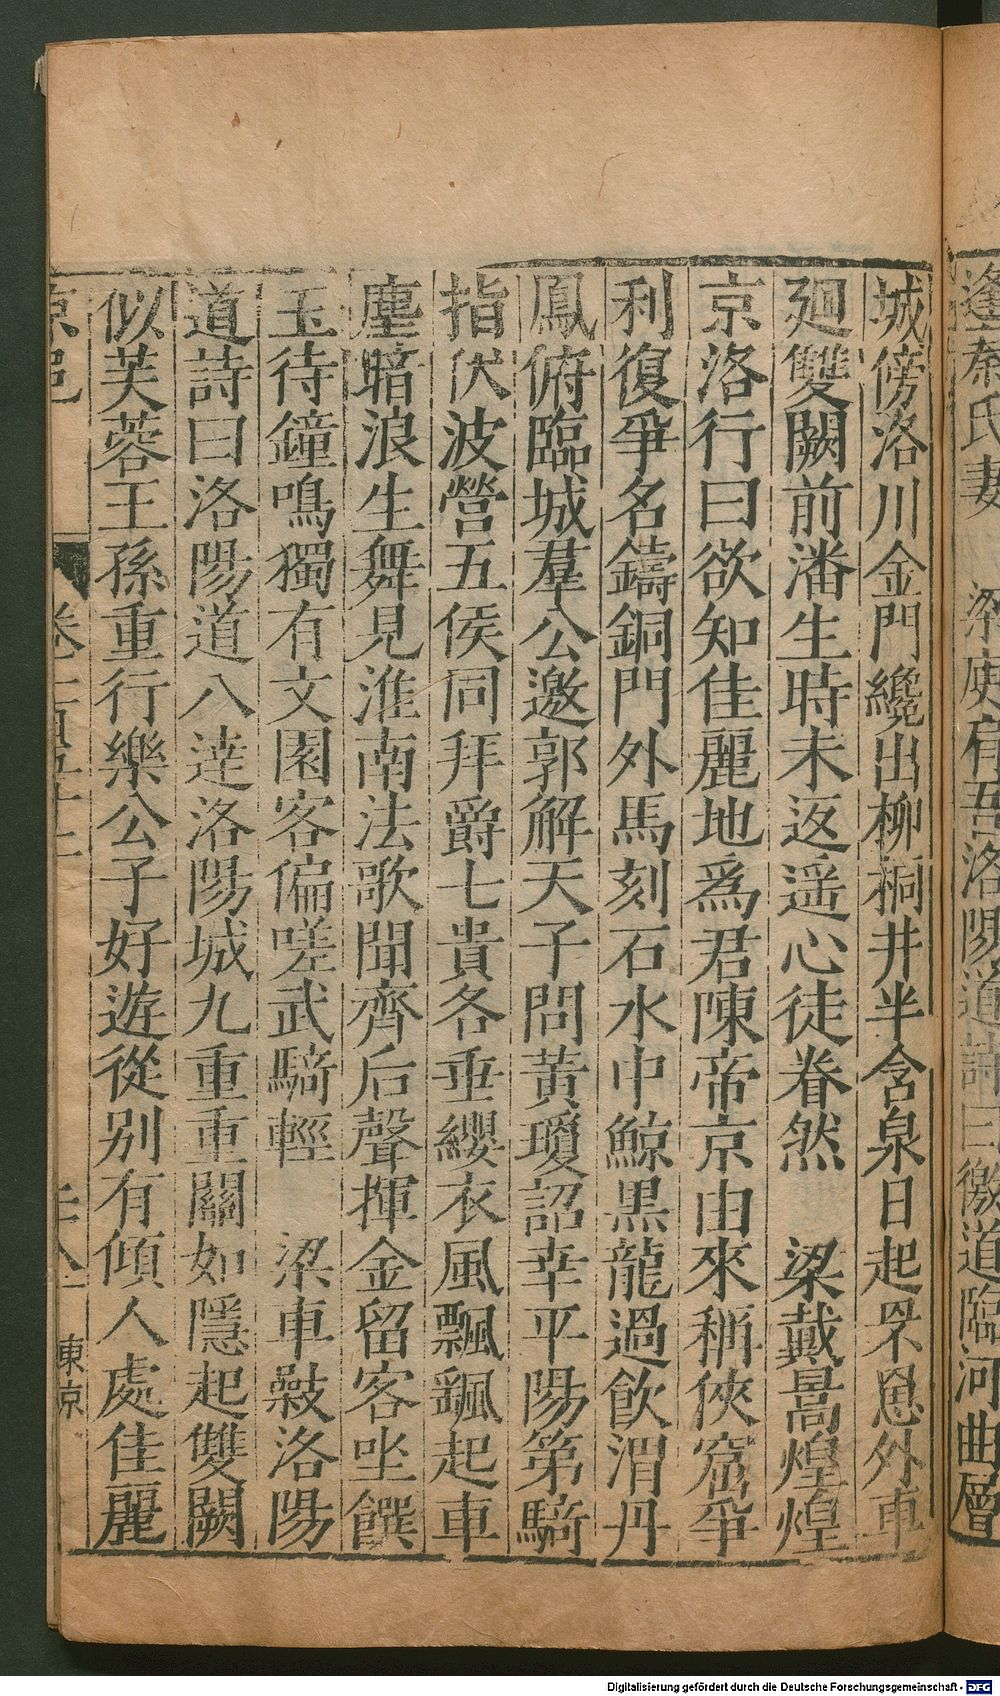 逢秦氏妻 梁庾肩吾洛陽道詩曰徼道臨河曲層
城傍洛川金門纔出柳桐井半含泉日起罘罳外車
廻雙闕前潘生時未返遥心徒眷然 梁戴暠煌煌
京洛行曰欲知佳麗地爲君陳帝京由來稱俠窟爭
利復爭名鑄銅門外馬刻石水中鯨黒龍過飲渭丹
鳳俯臨城羣公邀郭解天子問黄瓊詔幸平陽第騎
指伏波營五侯同拜爵七貴各垂纓衣風飄飄起車
塵暗浪生舞見淮南法歌聞齊后聲揮金留客坐饌
玉待鐘鳴獨有文園客偏嗟武騎輕 梁車㪣洛陽
道詩曰洛陽道八逹洛陽城九重重關如隱起雙闕
似芙蓉王孫重行樂公子好遊從别有傾人處佳麗
京邑
東京
Digitalisierung gefördert durch die Deutsche Forschungsgemeinschaft - DFG